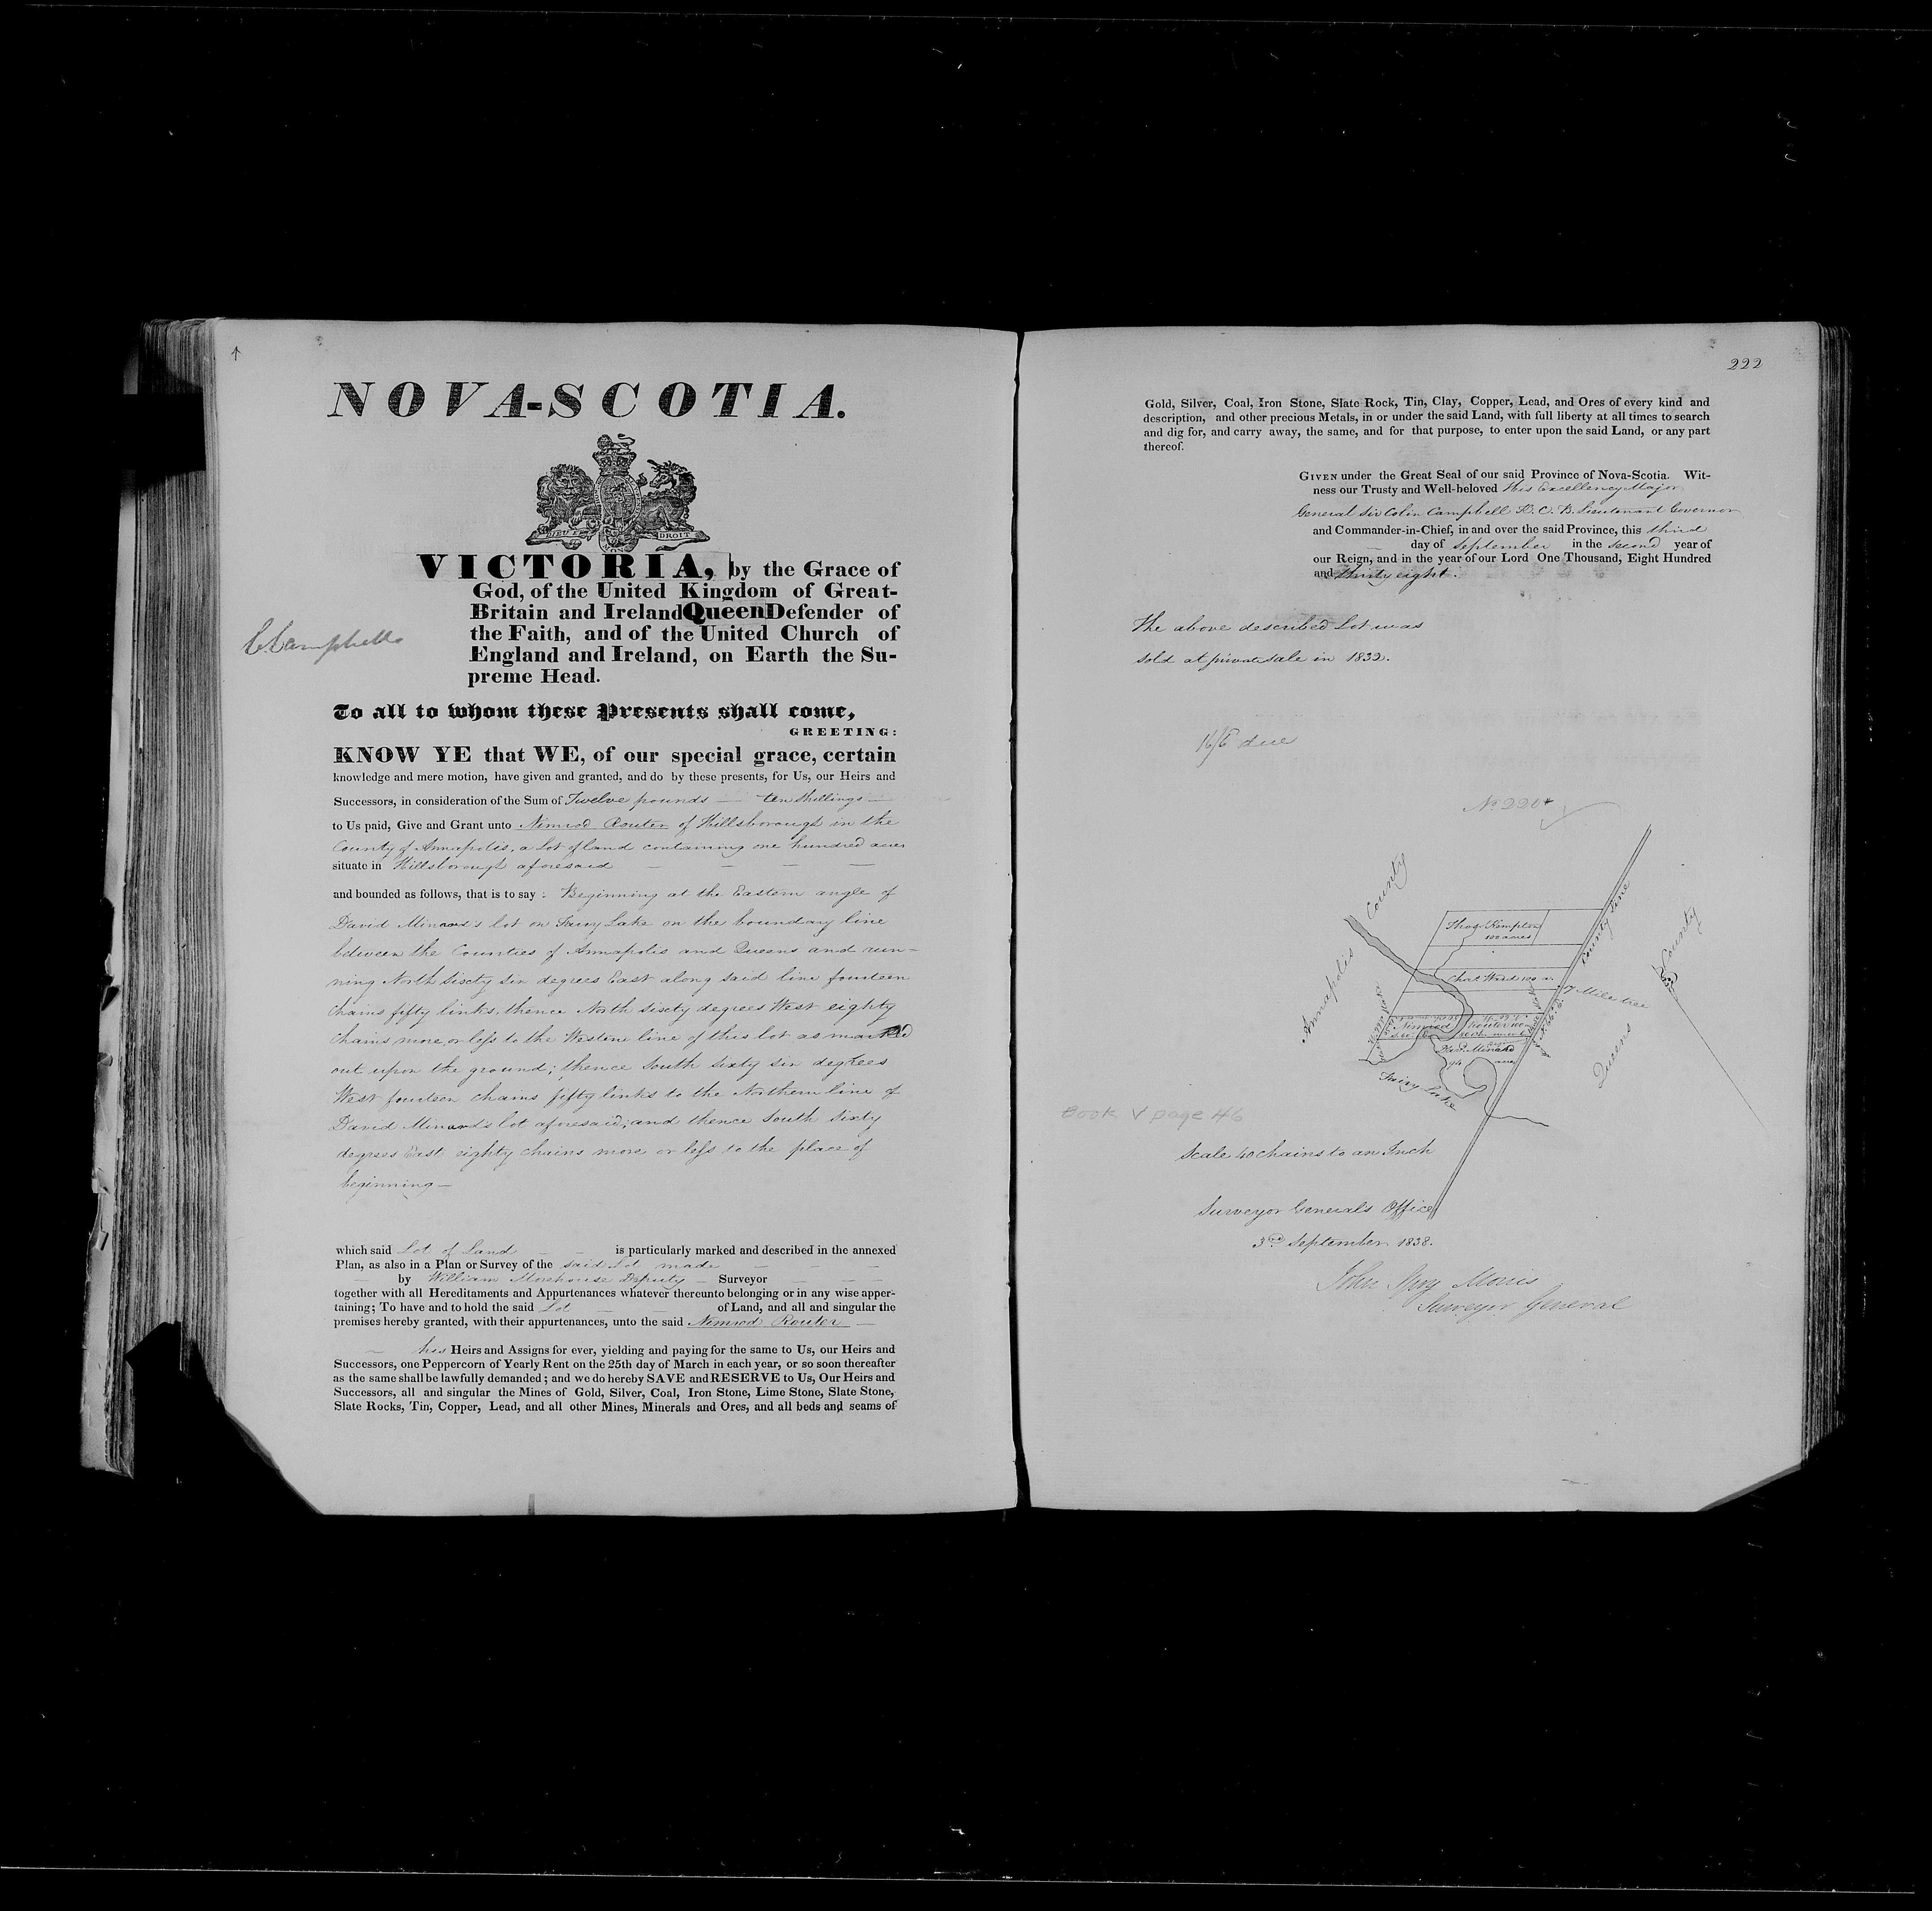 NOVA-SCOTIA.
DIEU ET MON DROIT
VICTORIA, by the Grace of
God, of the United Kingdom of Great-
Britain and Ireland Queen Defender of
the Faith, and of the United Church of
England and Ireland, on Earth the Su-
preme Head.
C. Campbell
To all to whom these Presents shall come,
GREETING:
KNOW YE that WE, of our special grace, certain
knowledge and mere motion, have given and granted, and do by these presents, for Us, our Heirs and
Successors, in consideration of the Sum of Twelve pounds — ten shillings —
to Us paid, Give and Grant unto Nimrod Router of Hillsborough in the
County of Annapolis, a Lot of land containing one hundred acres
situate in Hillsborough aforesaid — — — —
and bounded as follows, that is to say: Beginning at the Eastern angle of
David Minard's lot on Fairy Lake on the boundary line
between the Counties of Annapolis and Queens and run-
ning North sixty six degrees East along said line fourteen
chains fifty links, thence North sixty degrees West eighty
chains more or less to the Western line of this lot as marked
out upon the ground; thence South sixty six degrees
West fourteen chains fifty links to the Northern line of
David Minard's lot aforesaid; and thence South sixty
degrees East eighty chains more or less to the place of
beginning —
which said Lot of Land — — is particularly marked and described in the annexed
Plan, as also in a Plan or Survey of the said Lot made — — —
— by William Morehouse Deputy — Surveyor — — —
together with all Hereditaments and Appurtenances whatever thereunto belonging or in any wise apper-
taining; To have and to hold the said Lot — — of Land, and all and singular the
premises hereby granted, with their appurtenances, unto the said Nimrod Router —
— his Heirs and Assigns for ever, yielding and paying for the same to Us, our Heirs and
Successors, one Peppercorn of Yearly Rent on the 25th day of March in each year, or so soon thereafter
as the same shall be lawfully demanded; and we do hereby SAVE and RESERVE to Us, Our Heirs and
Successors, all and singular the Mines of Gold, Silver, Coal, Iron Stone, Lime Stone, Slate Stone,
Slate Rocks, Tin, Copper, Lead, and all other Mines, Minerals and Ores, and all beds and seams of
222
Gold, Silver, Coal, Iron Stone, Slate Rock, Tin, Clay, Copper, Lead, and Ores of every kind and
description, and other precious Metals, in or under the said Land, with full liberty at all times to search
and dig for, and carry away, the same, and for that purpose, to enter upon the said Land, or any part
thereof.
GIVEN under the Great Seal of our said Province of Nova-Scotia. Wit-
ness our Trusty and Well-beloved His Excellency Major
General Sir Colin Campbell K. C. B. Lieutenant Governor
and Commander-in-Chief, in and over the said Province, this third
— day of September in the second year of
our Reign, and in the year of our Lord One Thousand, Eight Hundred
and thirty eight.
The above described Lot was
sold at private sale in 1832.
16/6 due
No. 2204
Annapolis County
County Line
Queens County
Thos. Kempton
100 acres
Chas. Ward 100 a.
7 Mile tree
Nimrod Router 100
Davd. Minard
94 acres
Fairy Lake
Book V page 46
Scale 40 chains to an Inch
Surveyor Generals Office
3rd September 1838.
John Spry Morris
Surveyor General